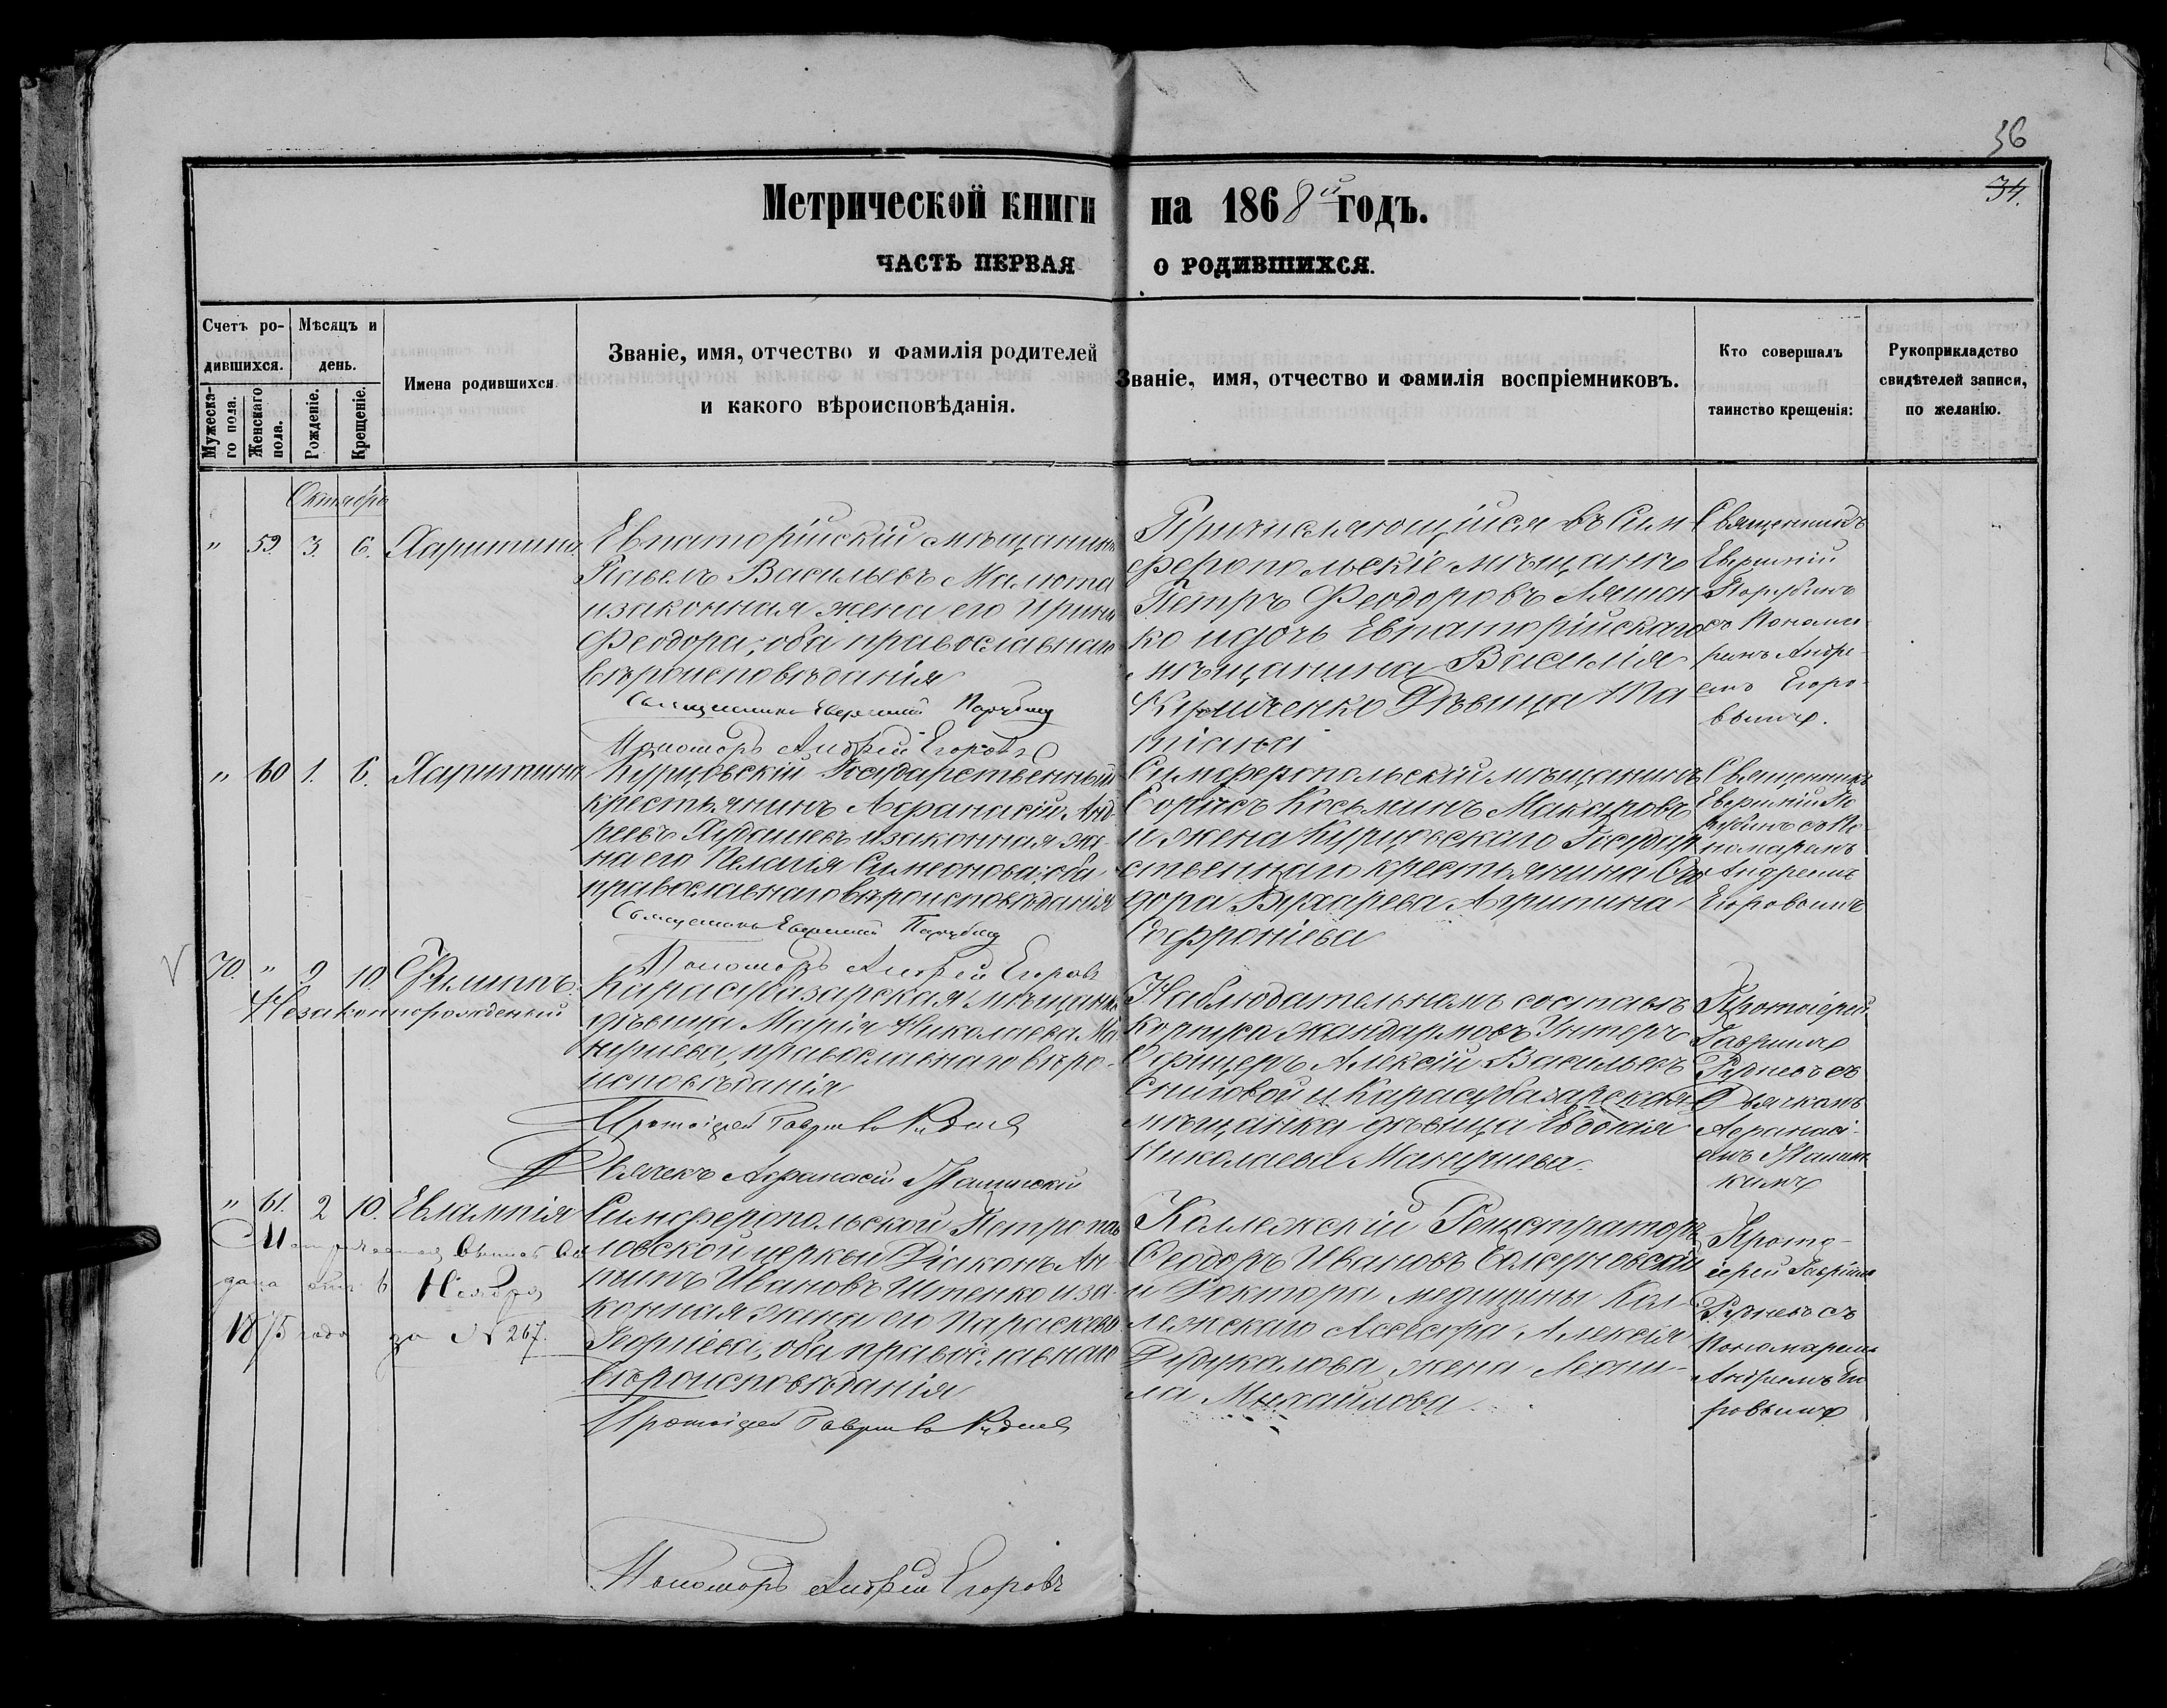 36
34.
Метрической книги на 1868й годъ.
ЧАСТЬ ПЕРВАЯ О РОДИВШИХСЯ.
Счетъ ро-
дившихся.
Мужеска-
го пола.
Женскаго
пола.
Мѣсяцъ и
день.
Рожденіе.
Крещеніе.
Имена родившихся.
Званіе, имя, отчество и фамилія родителей
и какого вѣроисповѣданія.
Званіе, имя, отчество и фамилія воспріемниковъ.
Кто совершалъ
таинство крещенія:
Рукоприкладство
свидѣтелей записи,
по желанію.
Октябрь
" 59. 3. 6. Харитина
Евпаторійскій мѣщанинъ
Павелъ Васильевъ Малюта
и законная жена его Ирина
Феодора, оба православнаго
вѣроисповѣданія
Священникъ Евгеній
Пономарь Андрей Егоровъ
Причисляющійся въ Сим
феропольскіе мѣщане
Петръ Феодоровъ Ляшен
ко и дочь Евпаторійскаго
мѣщанина Василія
Дѣвица Та
тіана
Священникъ
Евгеній
съ Понома
ремъ Андре
емъ Егоро
вымъ.
" 60 1. 6. Харитина
Курцовскій Государственный
крестьянинъ Афанасій Анд
реевъ и законная же
на его Пелагія Симеонова, оба
православнаго вѣроисповѣданія
Священникъ Евгеній
Пономарь Андрей Егоровъ
Симферопольскій мѣщанинъ
Борисъ Косьминъ Макаровъ
и жена Курцовскаго Государ
ственнаго крестьянина Фео
дора Агрипина
Софроніева
Священникъ
Евгеній
съ По
номаремъ
Андреемъ
Егоровымъ
70. " 9. 10. Филиппъ.
Незаконнорожденный
Карасубазарская мѣщанка
дѣвица Марія Николаева Ма
православнаго вѣро-
исповѣданія
Протоіерей Гавріилъ Рудневъ
Дьячекъ Афанасій
Наблюдательнаго состава
корпуса жандармовъ Унтеръ
Офицеръ Алексій Васильевъ
Снитовой и Карасубазарская
мѣщанка дѣвица Евдокія
Николаева
Протоіерей
Гавріилъ
Рудневъ съ
Дьячкомъ
Афанасі-
емъ
кимъ
" 61. 2 10. Евлампія
дана 6 Ноября
1875 года за № 267.
Симферопольской Петропав
ловской церкви Діаконъ Ан
Ивановъ Штенко и за-
конная жена его Параскева
Георгіева, оба православнаго
вѣроисповѣданія
Протоіерей Гавріилъ Рудневъ
Пономарь Андрей Егоровъ
Коллежскій Регистраторъ
Феодоръ Ивановъ
и Доктора медицины Кол
лежскаго Асессора Алексія
жена Леони-
ла Михайлова
Прото-
іерей Гавріилъ
Рудневъ съ
Пономаремъ
Андреемъ Его
ровымъ